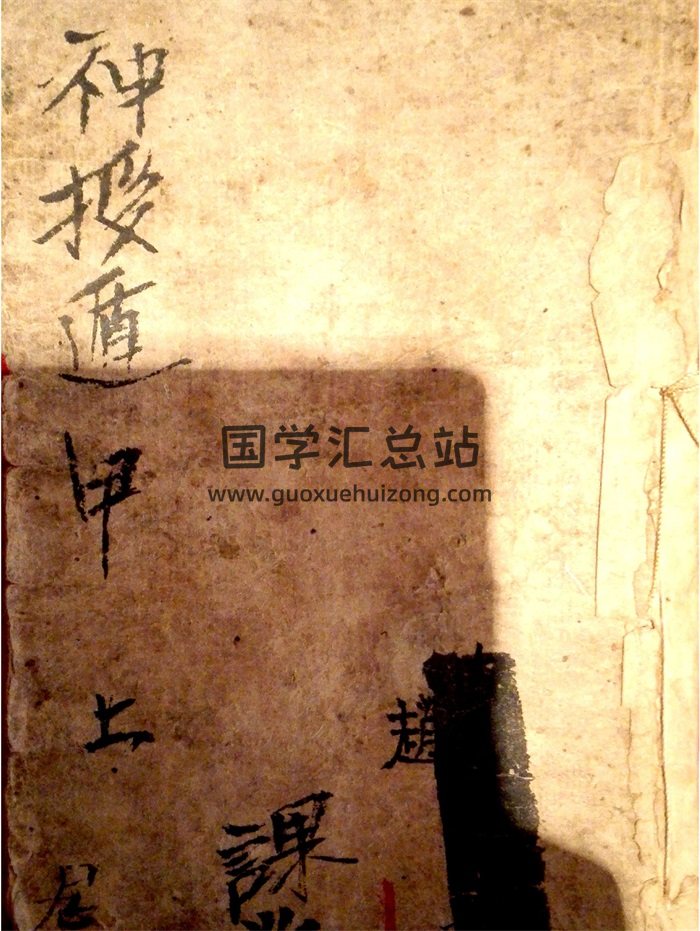 神授遁甲上
趙
課
国学汇总站
www.guoxuehuizong.com